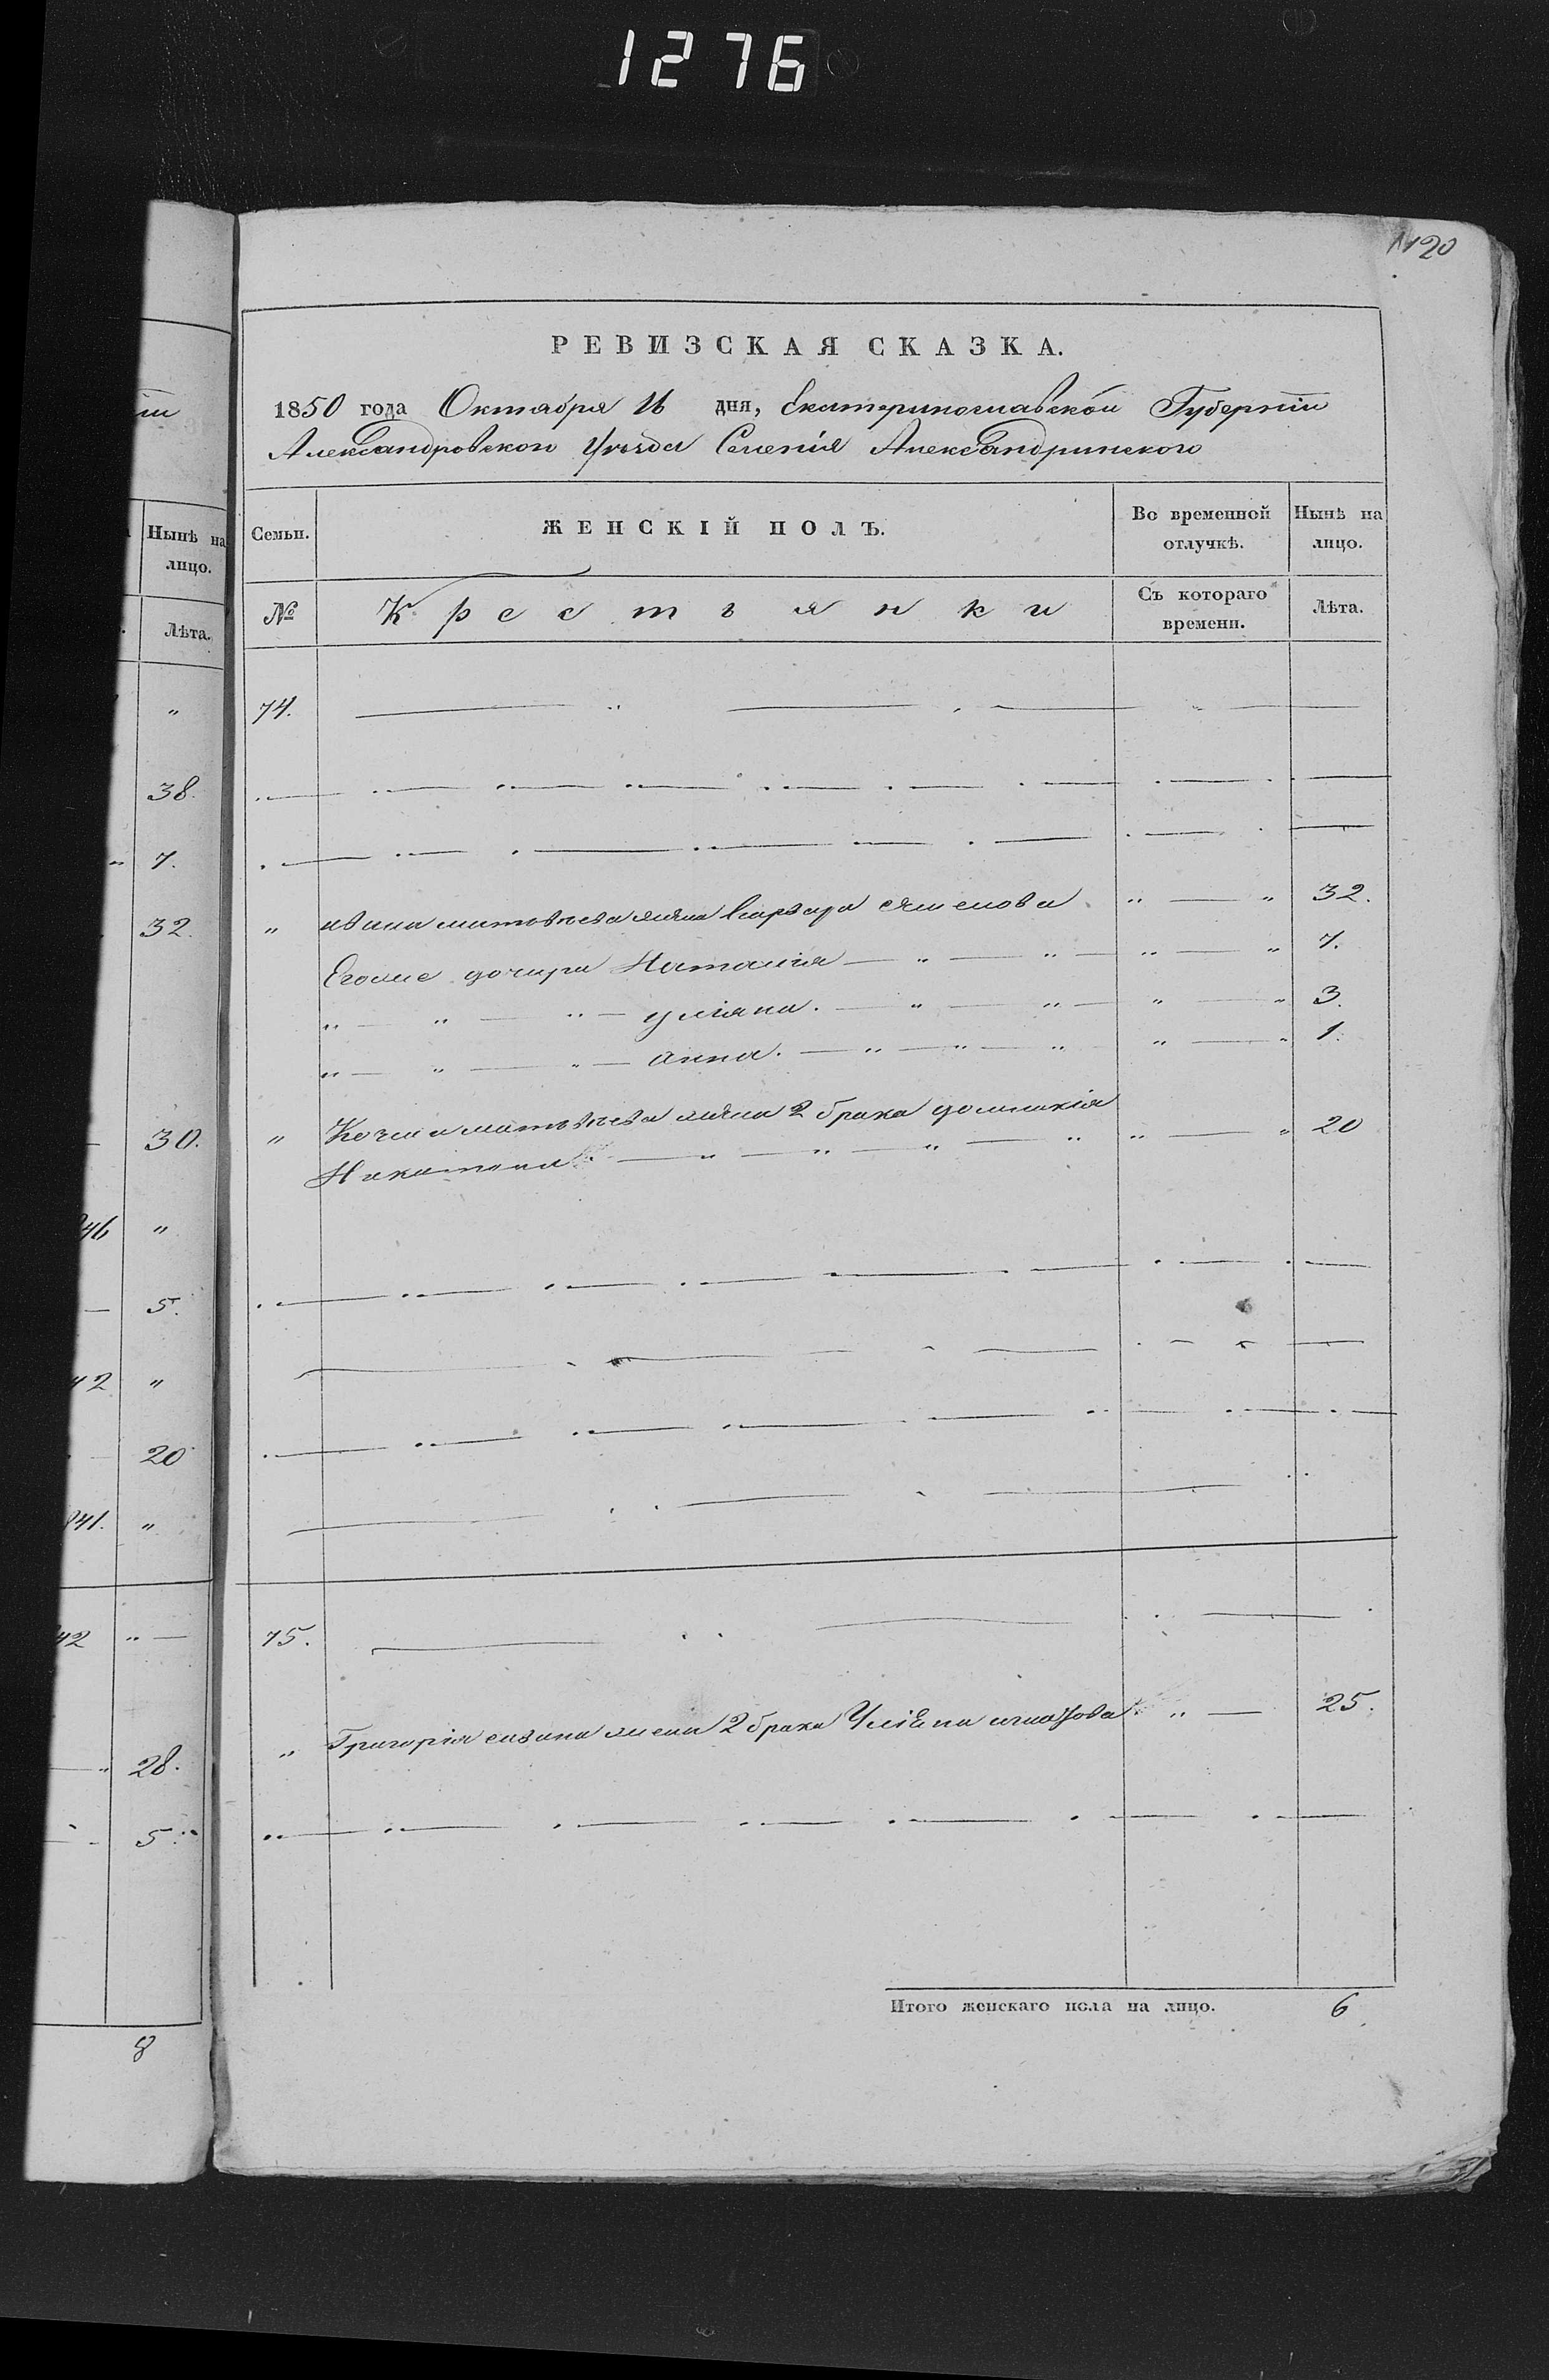 1276
1120
іи
РЕВИЗСКАЯ СКАЗКА.
1850 года Октября 16 дня, Екатеринославской Губерніи
Александровского Уѣзда Селенія Александринского
Нынѣ на лицо.
Лѣта.
"
38.
" 7.
32.
30.
846 "
5.
42 "
20
841. "
42 "
" 28.
5.
8
Семьи. ЖЕНСКІЙ ПОЛЪ. Во временной отлучкѣ. Нынѣ на лицо.
№ Крестьянки Съ котораго времени. Лѣта.
74.
" ивана матвѣева жена варвара семенова " " 32.
Егоже дочири Наталия " " 7.
" " " улияна. " " 3.
" " " анна. " " 1.
" матвѣева жена 2 брака домникія
" " 20
75.
" Григорія жена 2 брака Улияна " 25.
Итого женскаго пола на лицо. 6